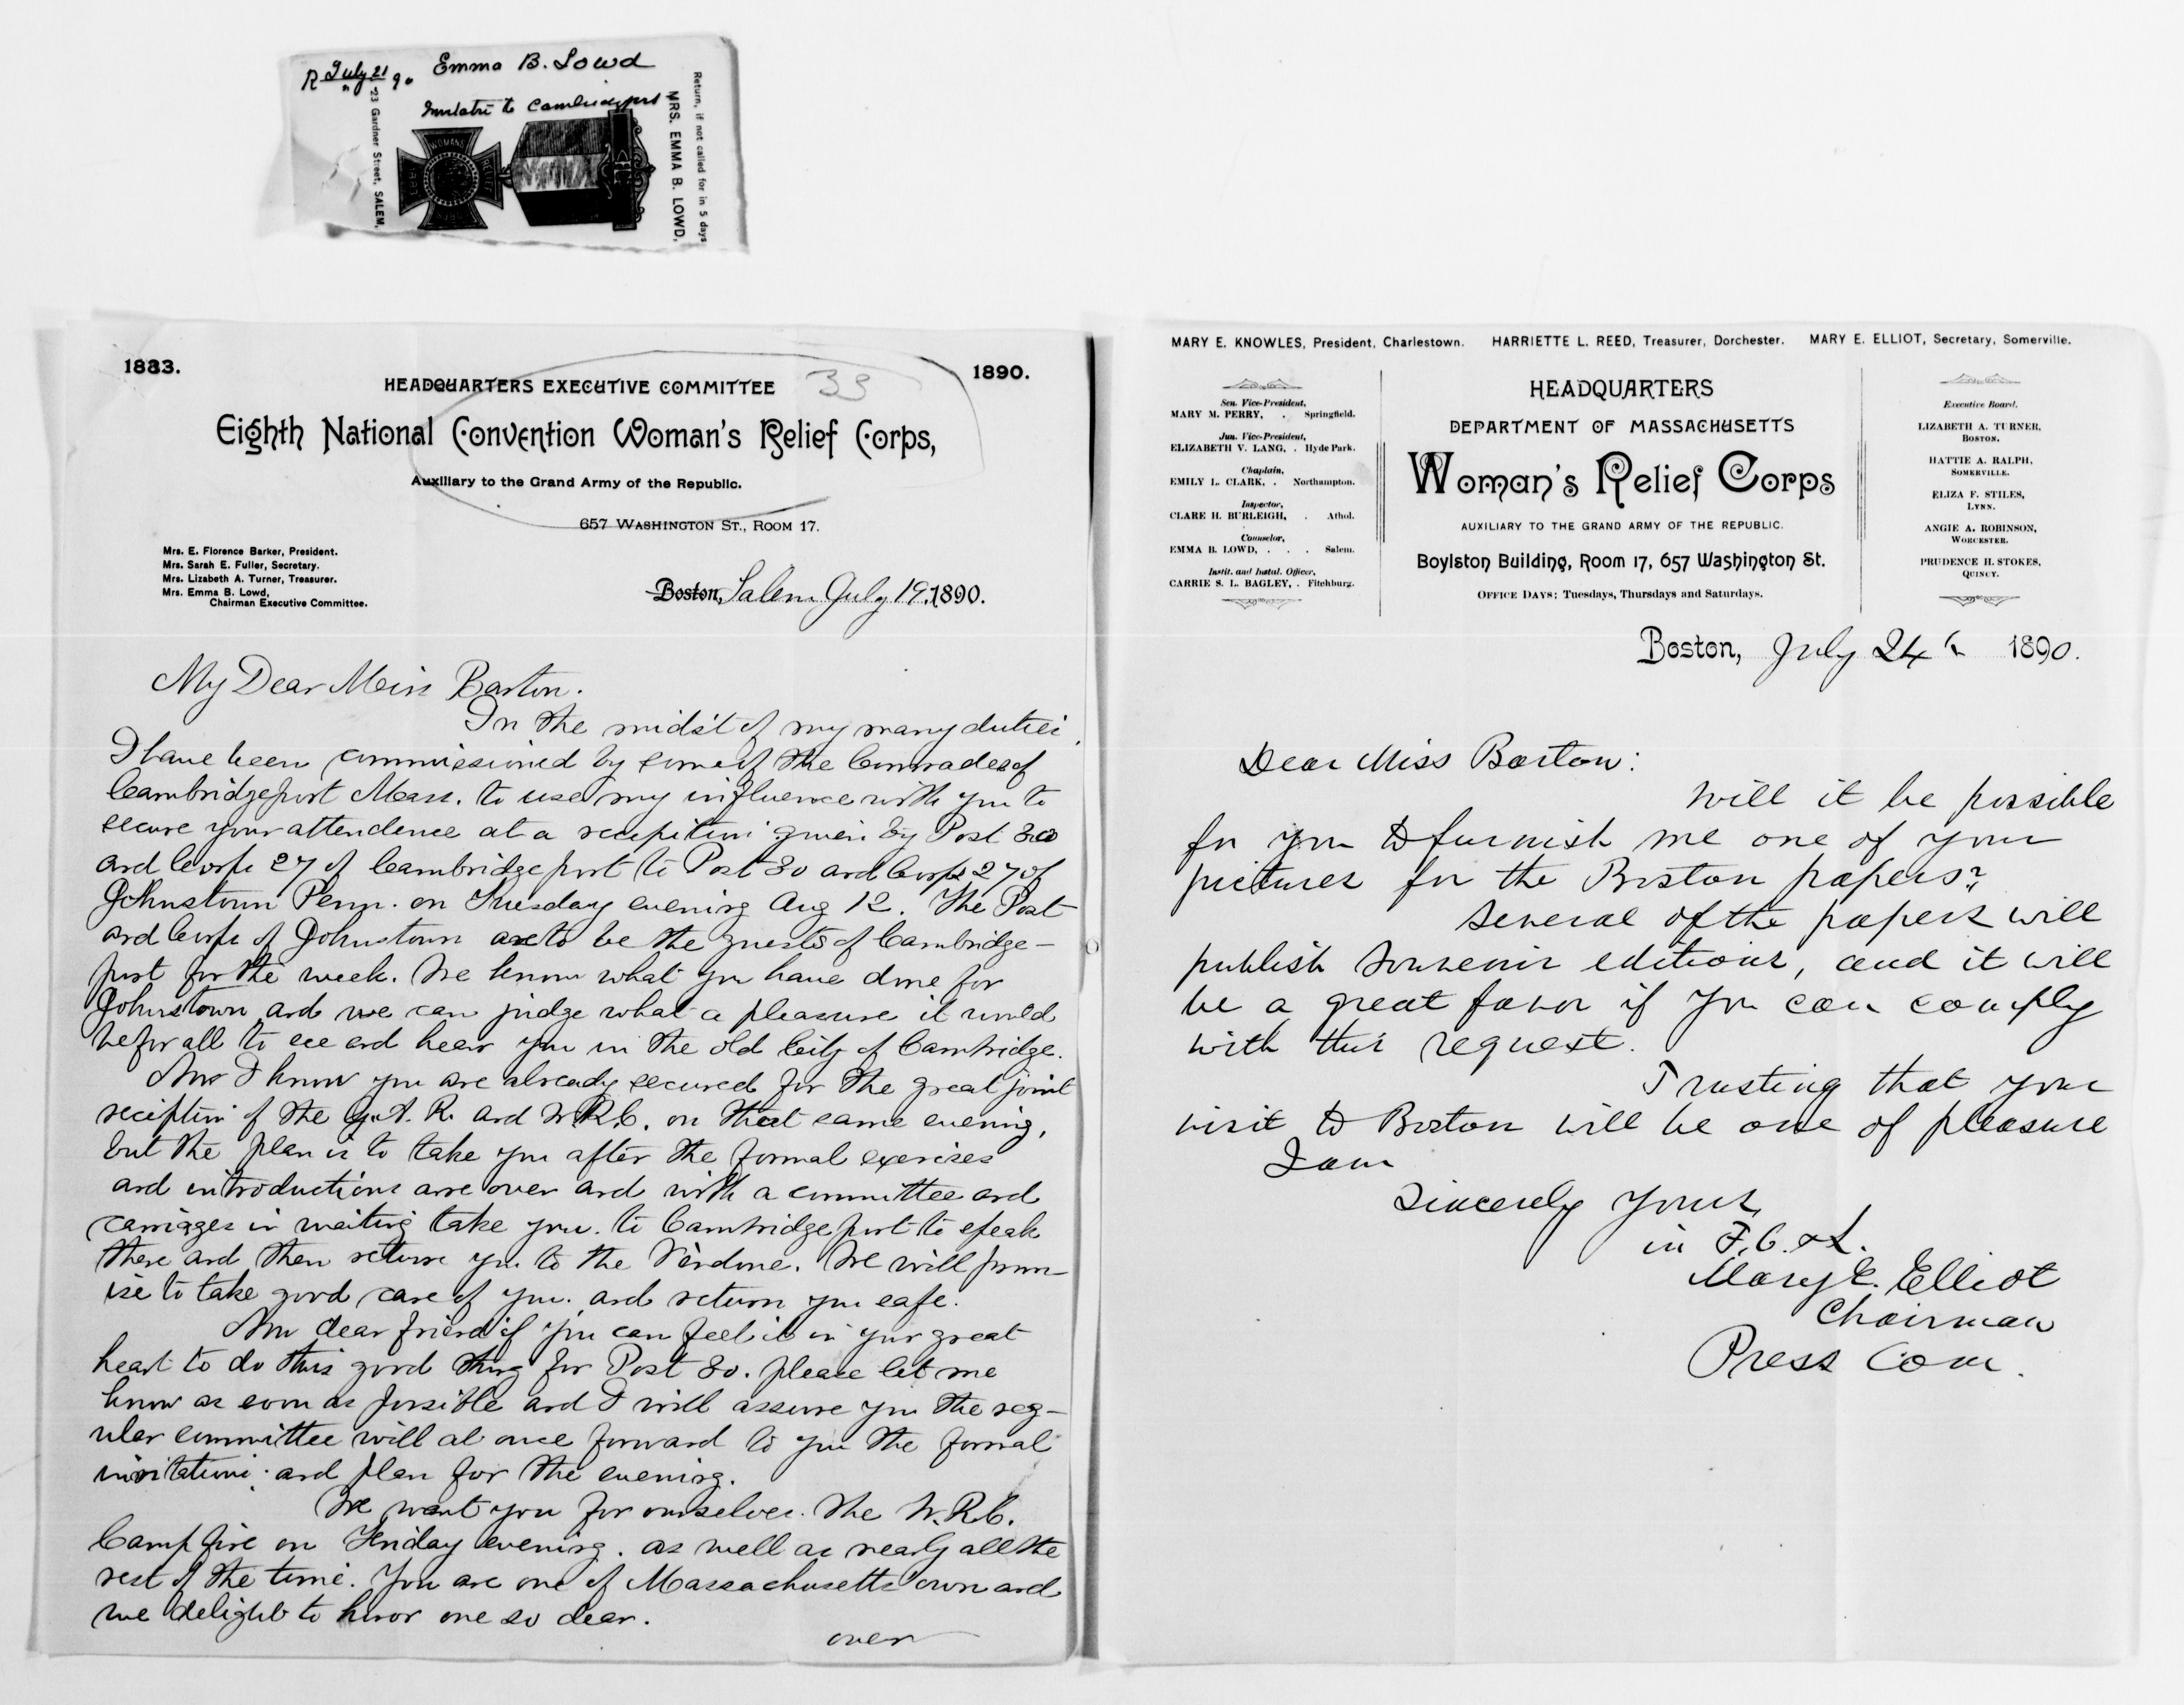 R July 21 90
Emma B. Lowd
to Cambridgeport
Return, if not called for in 5 days
MRS. EMMA B. LOWD,
23 Gardner Street, SALEM,
WOMANS RELIEF
1883
1883.
1890.
33
HEADQUARTERS EXECUTIVE COMMITTEE
Eighth National Convention Woman's Relief Corps,
Auxiliary to the Grand Army of the Republic.
657 WASHINGTON ST., ROOM 17.
Mrs. E. Florence Barker, President.
Mrs. Sarah E. Fuller, Secretary.
Mrs. Lizabeth A. Turner, Treasurer.
Mrs. Emma B. Lowd,
Chairman Executive Committee.
Boston, Salem July 19, 1890.
My Dear Miss Barton.
In the midst of my many duties
I have been commissioned by some of the Comrades of
Cambridgeport Mass. to use my influence with you to
secure your attendence at a reception given by Post 30
and Corps 27 of Cambridgeport to Post 30 and Corps 27 of
Johnstown Penn. on Tuesday evening Aug 12. The Post
and Corps of Johnstown are to be the guests of Cambridge-
port for the week. We know what you have done for
Johnstown and we can judge what a pleasure it would
be for all to see and hear you in the old City of Cambridge.
Now I know you are already secured for the great joint
reception of the G.A.R. and W.R.C. on that same evening,
but the plan is to take you after the formal exercises
and introductions are over and with a committee and
carriages in waiting take you to Cambridgeport to speak
there and then return you to the Vendome. We will prom-
ise to take good care of you and return you safe.
Now dear friend if you can feel it in your great
heart to do this good thing for Post 30. please let me
know as soon as possible and I will assure you the reg-
ular committee will at once forward to you the formal
invitation and plan for the evening.
We want you for ourselves. The W.R.C.
Camp fire on Friday evening. as well as nearly all the
rest of the time. You are one of Massachusetts own and
we delight to honor one so dear.
over
MARY E. KNOWLES, President, Charlestown. HARRIETTE L. REED, Treasurer, Dorchester. MARY E. ELLIOT, Secretary, Somerville.
Sen. Vice-President,
MARY M. PERRY, . Springfield.
Jun. Vice-President,
ELIZABETH V. LANG, . Hyde Park.
Chaplain,
EMILY L. CLARK, . Northampton.
Inspector,
CLARE H. BURLEIGH, . Athol.
Counselor,
EMMA B. LOWD, . . . Salem.
Instit. and Instal. Officer,
CARRIE S. L. BAGLEY, . Fitchburg.
HEADQUARTERS
DEPARTMENT OF MASSACHUSETTS
Woman's Relief Corps
AUXILIARY TO THE GRAND ARMY OF THE REPUBLIC.
Boylston Building, Room 17, 657 Washington St.
OFFICE DAYS: Tuesdays, Thursdays and Saturdays.
Executive Board.
LIZABETH A. TURNER,
BOSTON.
HATTIE A. RALPH,
SOMERVILLE.
ELIZA F. STILES,
LYNN.
ANGIE A. ROBINSON,
WORCESTER.
PRUDENCE H. STOKES,
QUINCY.
Boston, July 24 1890.
Dear Miss Barton:
Will it be possible
for you to furnish me one of your
pictures for the Boston papers?
Several of the papers will
publish Souvenir editions, and it will
be a great favor if you can comply
with this request.
Trusting that your
visit to Boston will be one of pleasure
I am
Sincerely Yours,
in F. C. & L.
Mary E. Elliot
Chairman
Press Com.